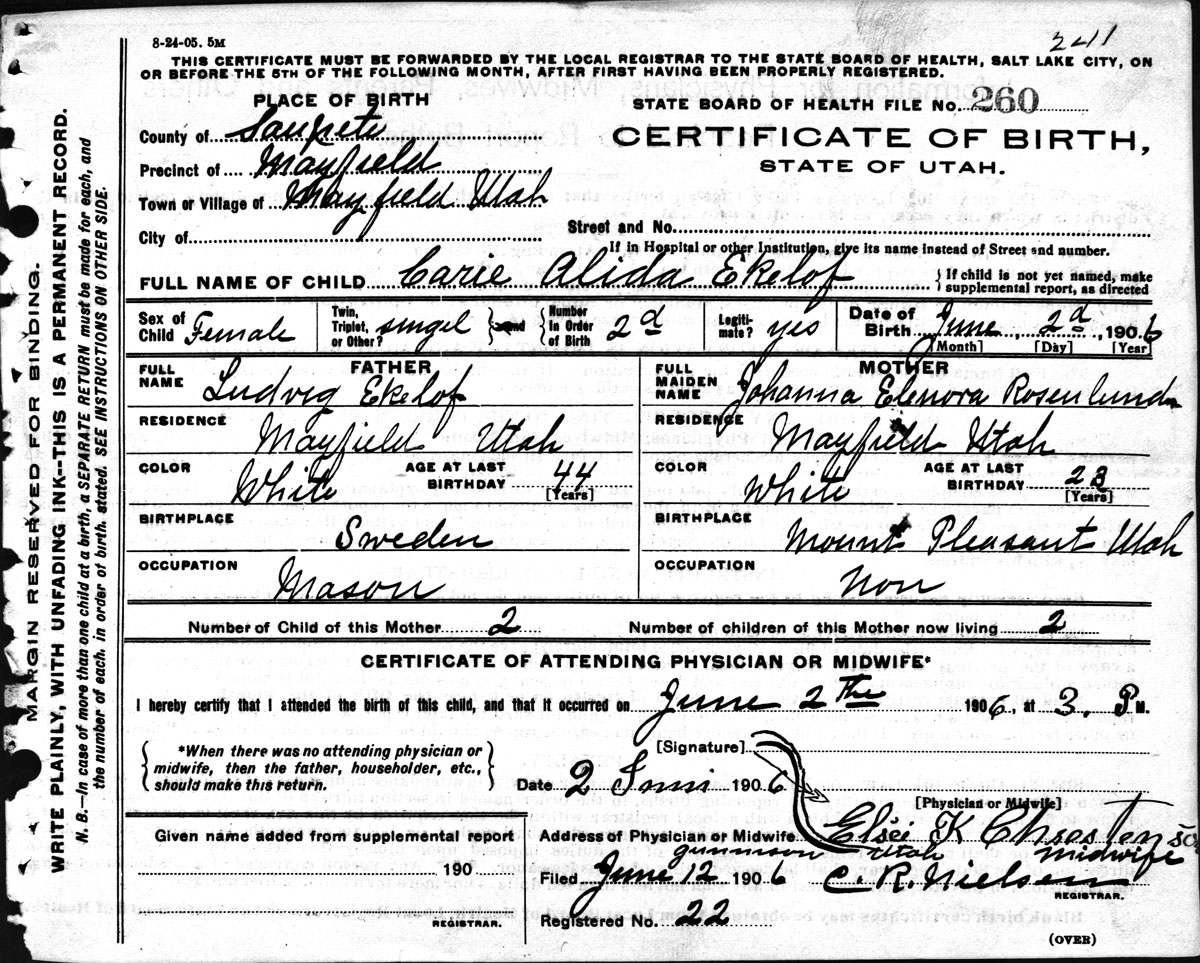 8-24-05. 5M
241
THIS CERTIFICATE MUST BE FORWARDED BY THE LOCAL REGISTRAR TO THE STATE BOARD OF HEALTH, SALT LAKE CITY, ON
OR BEFORE THE 5TH OF THE FOLLOWING MONTH, AFTER FIRST HAVING BEEN PROPERLY REGISTERED.
PLACE OF BIRTH
STATE BOARD OF HEALTH FILE No. 260
County of Sanpete
CERTIFICATE OF BIRTH,
STATE OF UTAH.
Precinct of Mayfield
Town or Village of Mayfield Utah
City of
Street and No.
If in Hospital or other Institution, give its name instead of Street and number.
FULL NAME OF CHILD Carie Alida Ekelof
{If child is not yet named, make
supplemental report, as directed
Sex of Child Female
Twin, Triplet, or Other? singel } and { Number In Order of Birth 2d
Legitimate? yes
Date of Birth June, 2d, 1906
[Month] [Day] [Year]
FATHER
FULL NAME Ludvig Ekelof
RESIDENCE Mayfield Utah
COLOR White
AGE AT LAST BIRTHDAY 44
[Years]
BIRTHPLACE Sweden
OCCUPATION Mason
MOTHER
FULL MAIDEN NAME Johanna Elenora Rosenlund
RESIDENCE Mayfield Utah
COLOR White
AGE AT LAST BIRTHDAY 23
[Years]
BIRTHPLACE Mount Pleasant Utah
OCCUPATION Non
Number of Child of this Mother 2
Number of children of this Mother now living 2
CERTIFICATE OF ATTENDING PHYSICIAN OR MIDWIFE*
I hereby certify that I attended the birth of this child, and that it occurred on June 2the 1906, at 3. P M.
{*When there was no attending physician or
midwife, then the father, householder, etc.,
should make this return.}
[Signature]
Date 2 Juni 1906
[Physician or Midwife]
Elsie K Christenson
Given name added from supplemental report
190
REGISTRAR.
Address of Physician or Midwife
Gunnison Utah Midwife
Filed June 12 1906
C. R. Nielson
REGISTRAR.
Registered No. 22
(OVER)
MARGIN RESERVED FOR BINDING.
WRITE PLAINLY, WITH UNFADING INK--THIS IS A PERMANENT RECORD.
N. B.—In case of more than one child at a birth, a SEPARATE RETURN must be made for each, and
the number of each, in order of birth, stated. SEE INSTRUCTIONS ON OTHER SIDE.